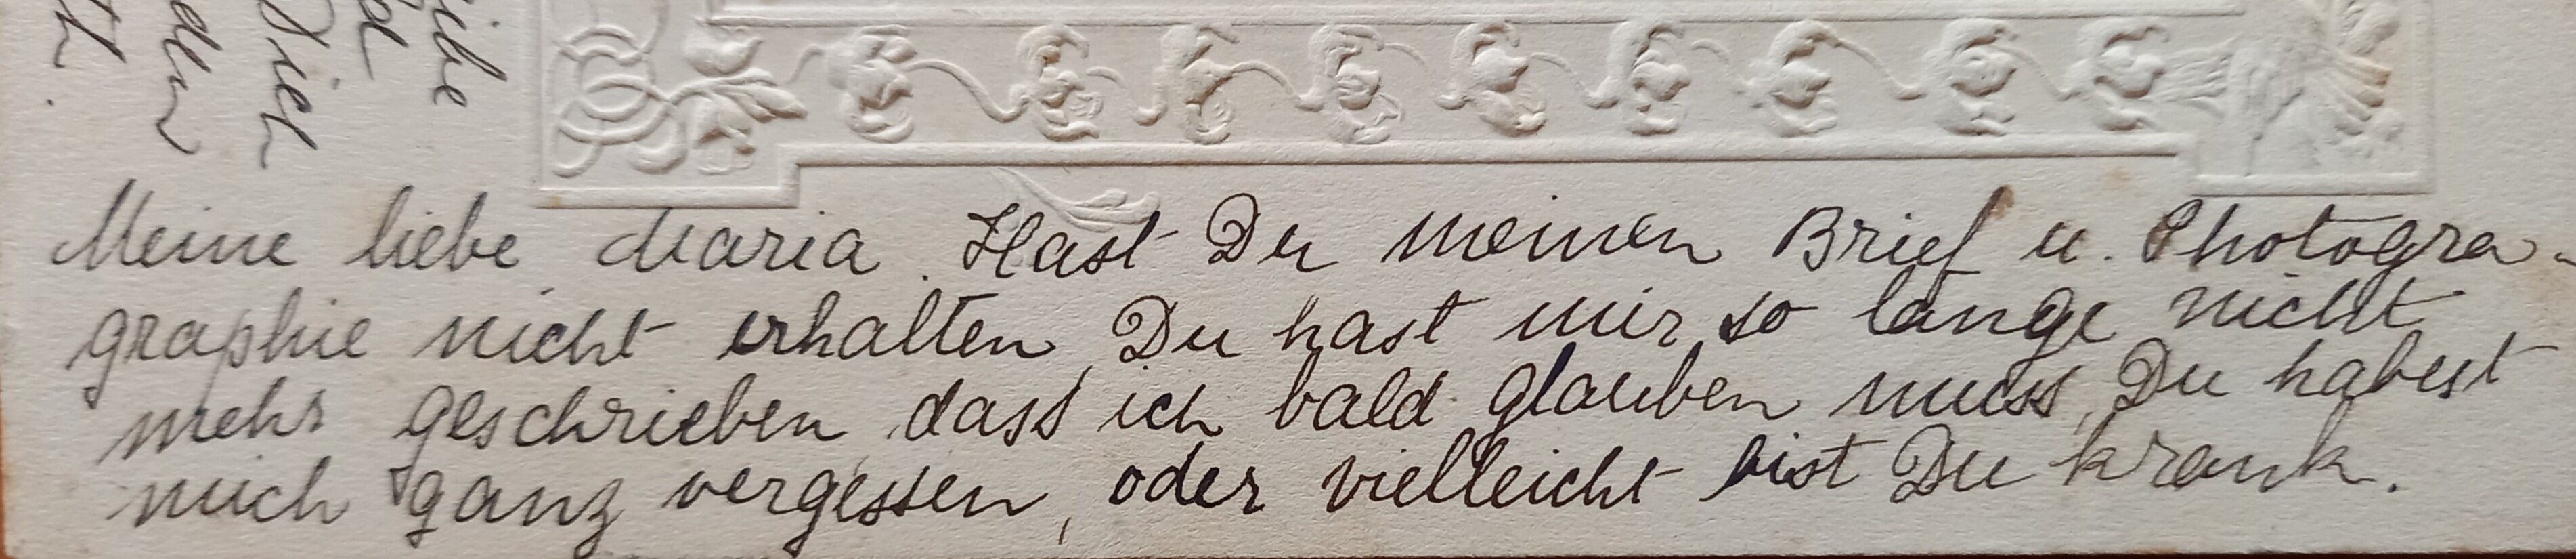 Meine liebe Maria. Hast Du meinen Brief u. Photogra-
graphie nicht erhalten, Du hast mir so lange nicht
mehr geschrieben, dass ich bald glauben muss, Du habest
mich ganz vergessen, oder vielleicht bist Du krank.